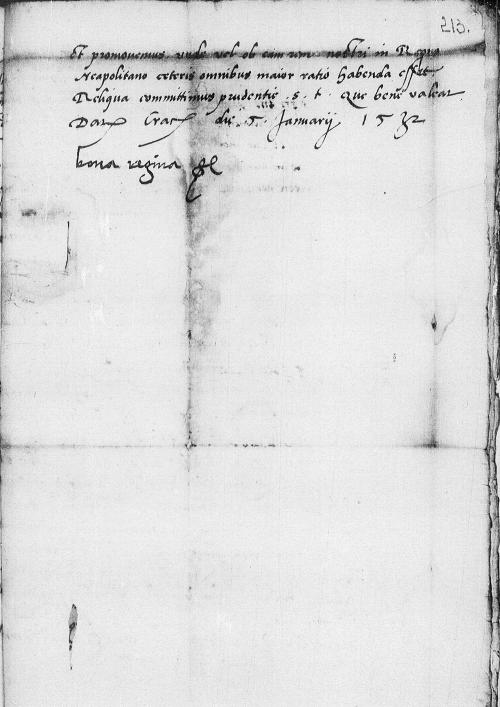 213.
Et promovemus unde vel ob eam rem nostri in Regno
Neapolitano ceteris omnibus maior ratio habenda esset
Reliqua committimus prudentie . s . t . Que bene valeat.
Dat Crac die 5 Januarij 1532
bona regina